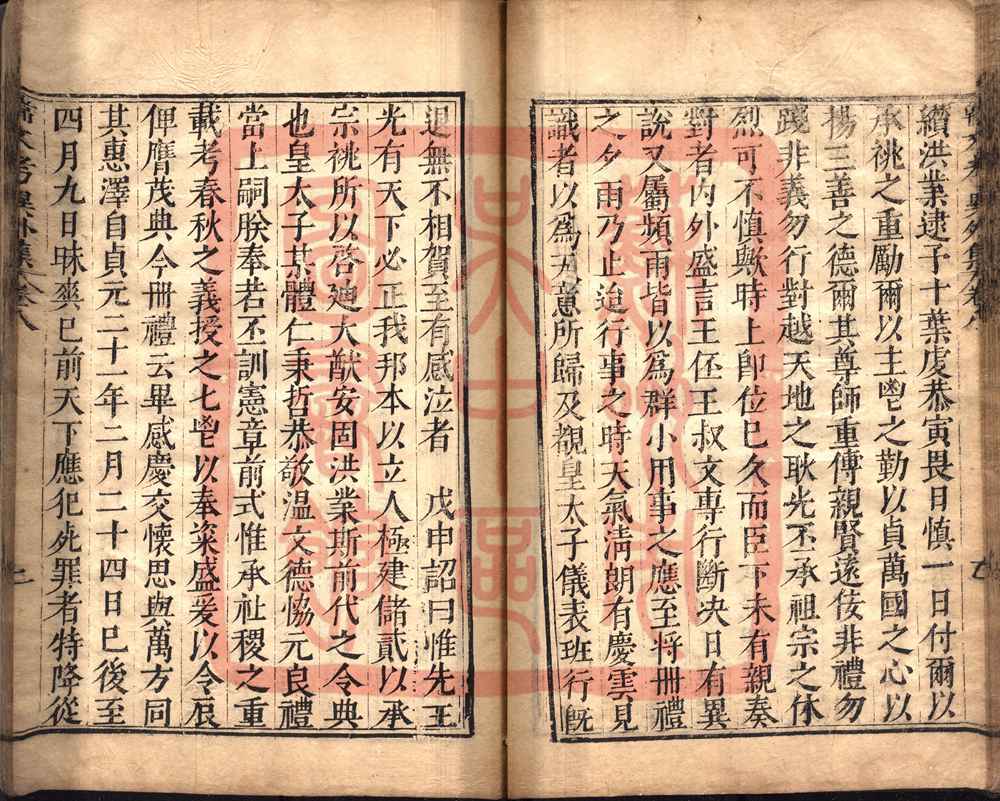 續洪業逮予十葉虔恭寅畏日慎一日付爾以
承祧之重勵爾以主鬯之勤以貞萬國之心以
揚三善之德爾其尊師重傅親賢遠佞非禮勿
踐非義勿行對越天地之耿光丕承祖宗之休
烈可不慎歟時上即位已久而臣下未有親奏
對者内外盛言王伾王叔文專行斷决日有異
說又屬頻雨皆以爲群小用事之應至將冊禮
之夕雨乃止迨行事之時天氣淸朗有慶雲見
識者以爲天意所歸及覩皇太子儀表班行旣
退無不相賀至有感泣者　戊申詔曰惟先王
光有天下必正我邦本以立人極建儲貳以承
宗祧所以啓廸大猷安固洪業斯前代之令典
也皇太子某體仁秉哲恭敬温文德恊元良禮
當上嗣朕奉若丕訓憲章前式惟承社稷之重
載考春秋之義授之七鬯以奉粢盛爰以令辰
俾膺茂典今冊禮云畢感慶交懷思與萬方同
其惠澤自貞元二十一年二月二十四日已後至
四月九日昧爽已前天下應犯死罪者特降從